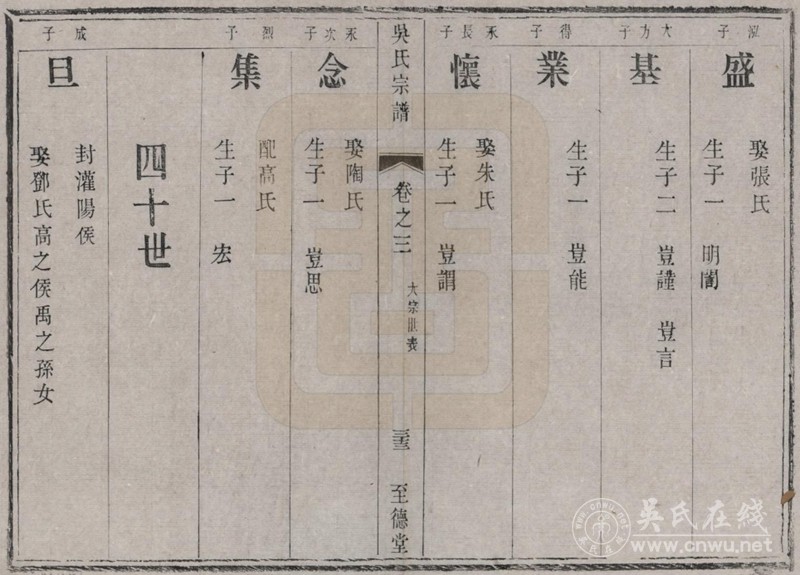 泓子
盛
娶張氏
生子一　明闇
大方子
基
生子二　豈謹　豈言
得子
業
生子一　豈能
永長子
懷
娶朱氏
生子一　豈謂
吳氏宗譜
卷之三
大宗世表
三三
至德堂
永次子
念
娶陶氏
生子一　豈思
烈子
集
配高氏
生子一　宏
四十世
成子
旦
封灌陽侯
娶鄧氏高之侯禹之孫女
吳氏在线
www.cnwu.net